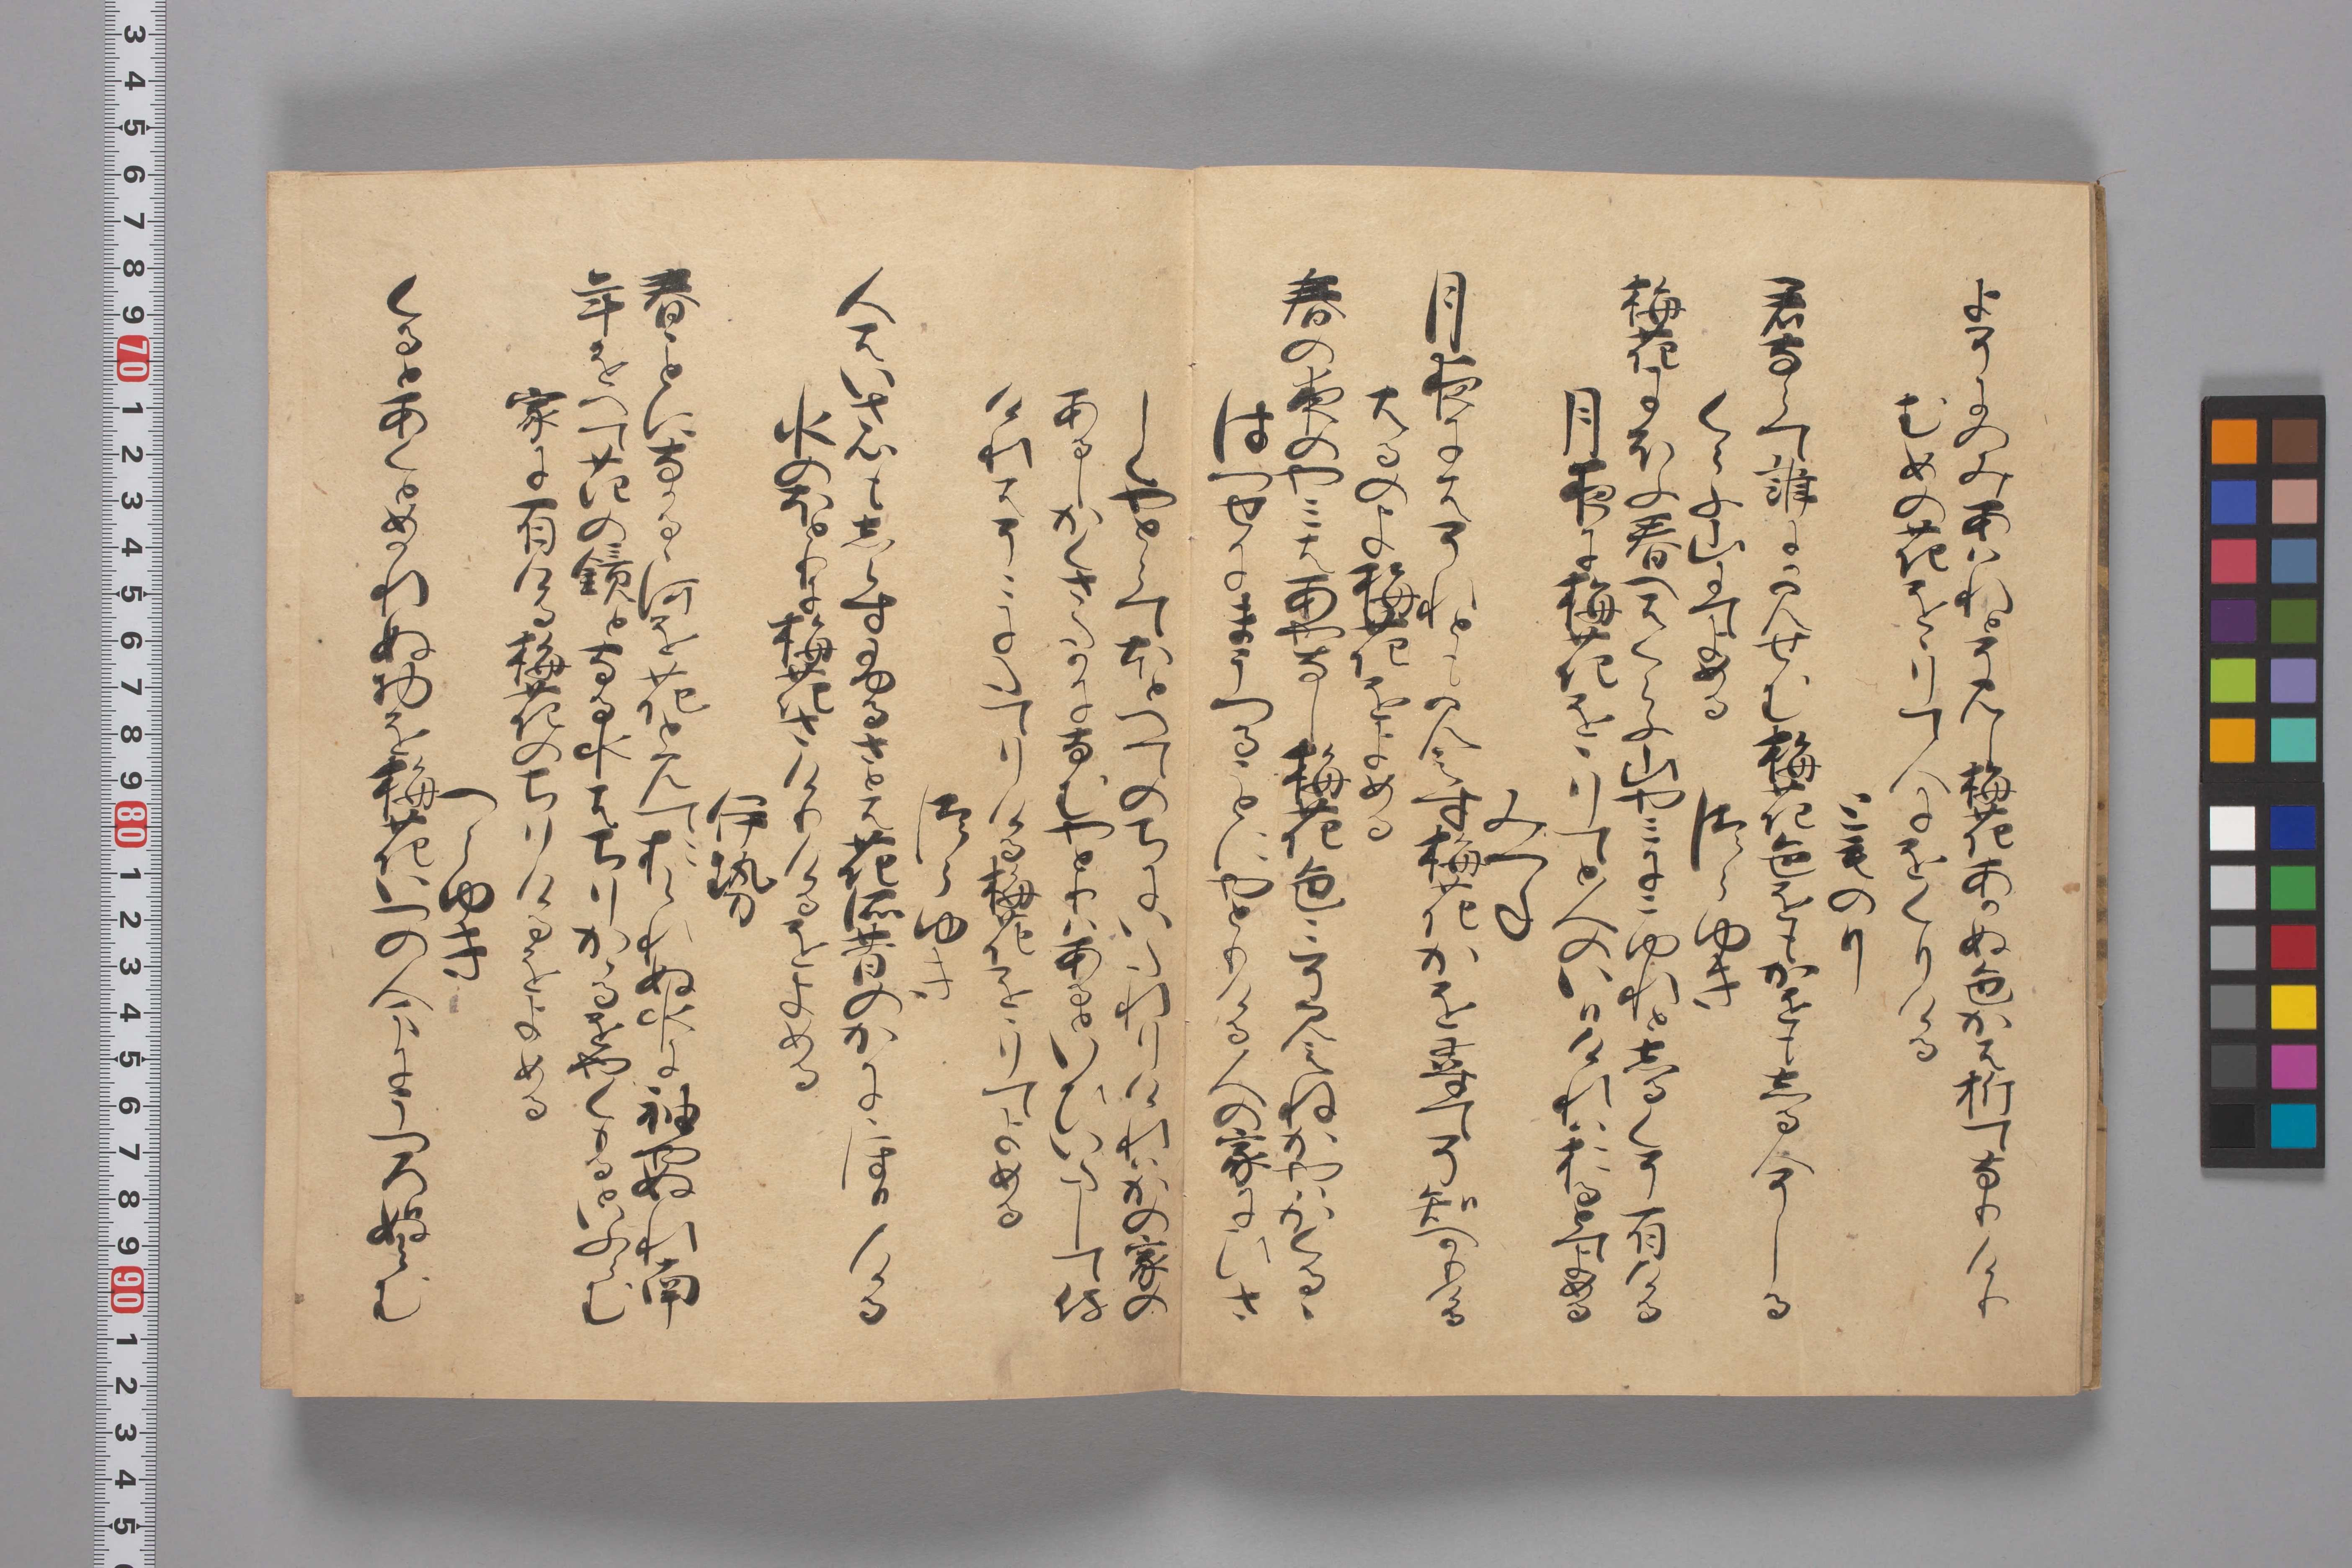 よそにのみあはれとそみし梅花あかぬ色かは折てなりけり
むめの花をゝりて人にをくりける
とものり
君ならて誰にかみせむ梅花色をもかをもしる人そしる
くらふ山にてよめる
つらゆき
梅花にほふ春へはくらふ山やみにこゆれとしるくそ有ける
月夜に梅花をゝりてと人のいひけれはおるとてよめる
みつね
月夜にはそれともみえす梅花かをたつねてそしるへかりける
はるのよ梅花をよめる
春の夜のやみはあやなし梅花色こそみえねかやはかくるゝ
はつせにまうつることにやとりける人の家にひさ
しくやとらてほとへてのちにいたれりけれはかの家の
あるしかくさたかになむやとはあるといひいたして侍
けれはそこにたてりける梅花をゝりてよめる
つらゆき
人はいさ心もしらすふるさとは花そ昔のかにほひける
水のほとりに梅花さけりけるをよめる
伊勢
春ことになかるゝ河を花とみておられぬ水に袖やぬれ南
年をへて花の鏡となる水はちりかゝるをやくもるといふらむ
家に有ける梅花のちりけるをよめる
つらゆき
くるとあくとめかれぬ物を梅花いつの人まにうつろひぬらむ